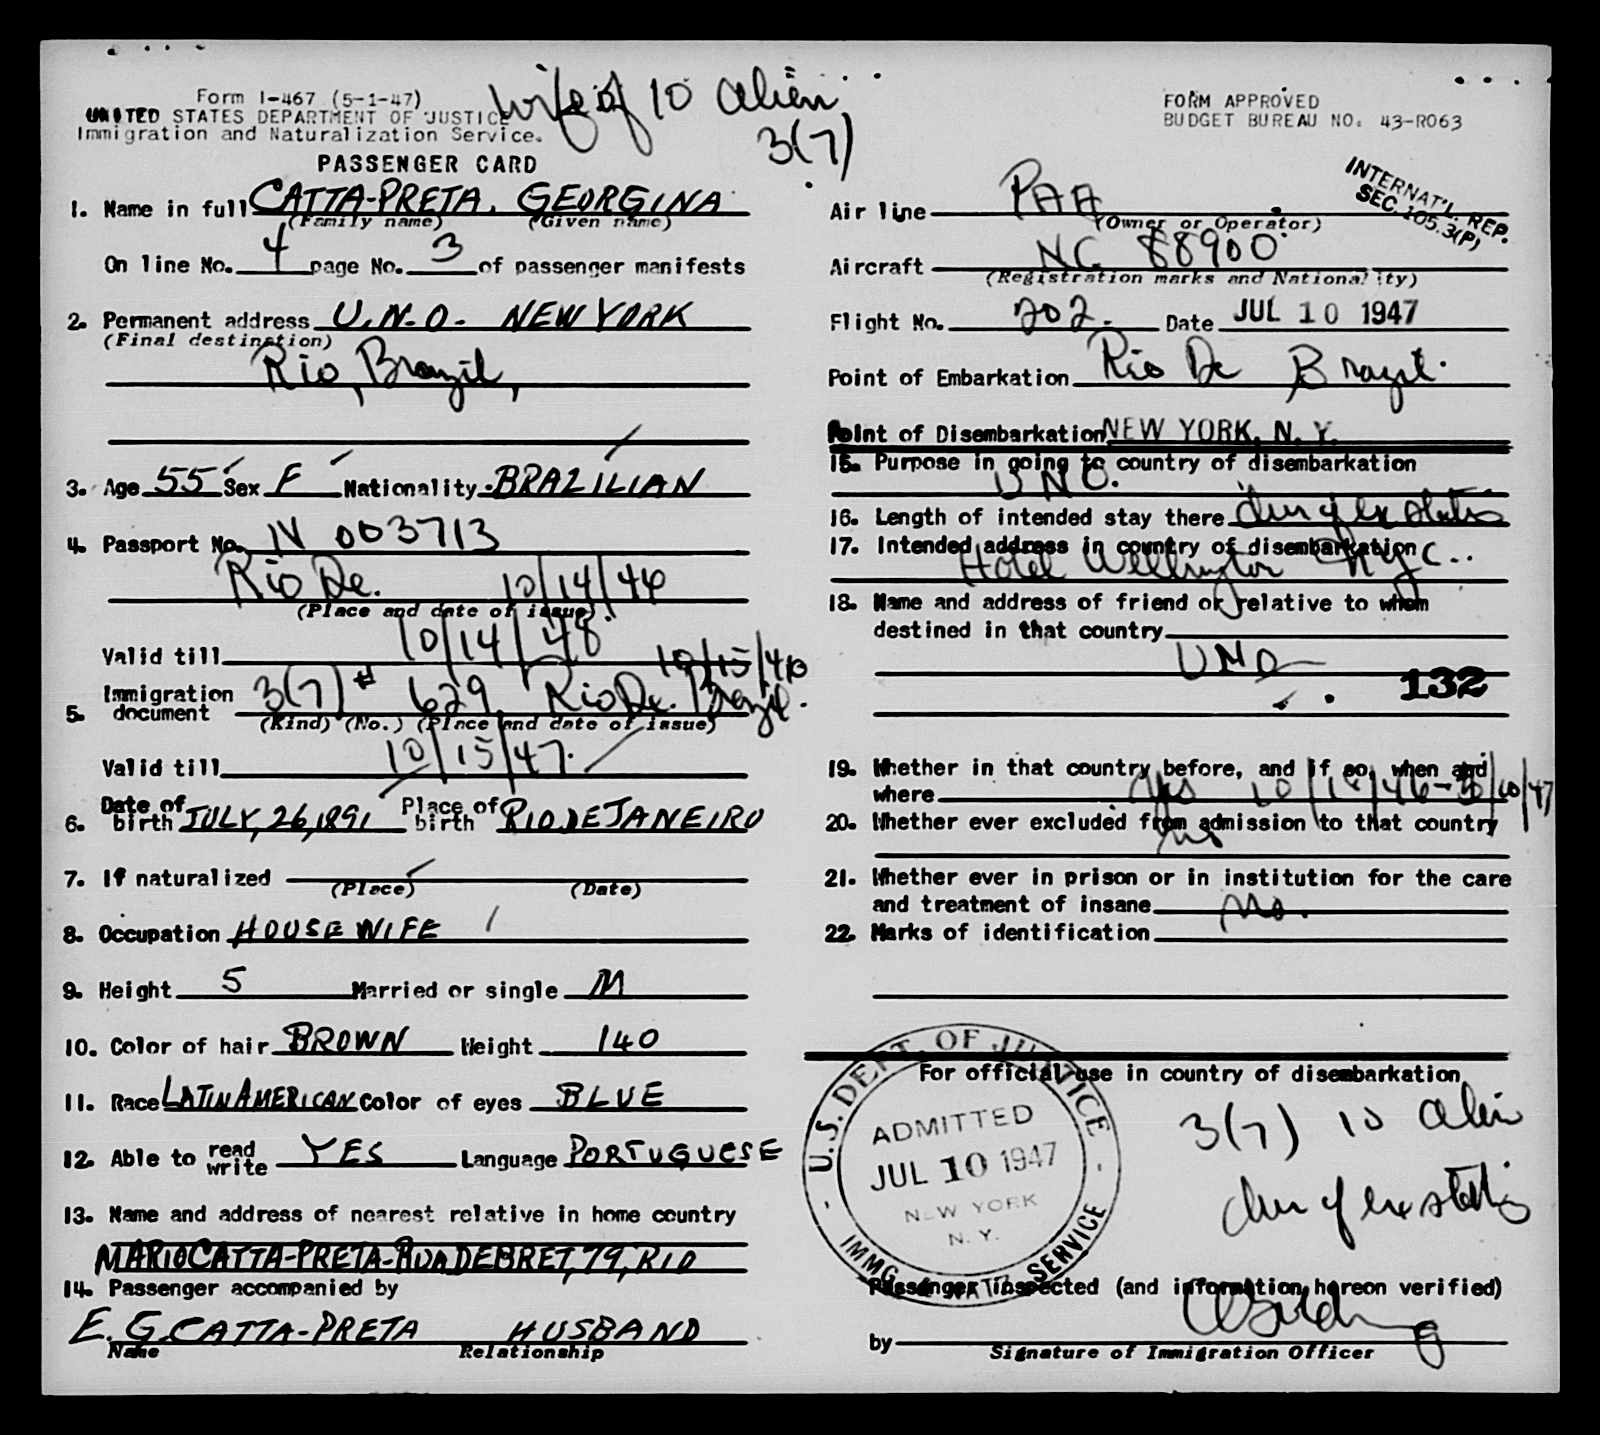 wife of 10 alien
3(7)
Form I-467 (5-1-47)
UNITED STATES DEPARTMENT OF JUSTICE
Immigration and Naturalization Service.
PASSENGER CARD
1. Name in full CATTA-PRETA, GEORGINA
(Family name) (Given name)
On line No. 4 page No. 3 of passenger manifests
2. Permanent address U.N.O. NEW YORK
(Final destination)
Rio, Brazil,
3. Age 55 Sex F Nationality BRAZILIAN
4. Passport No. IV 003713
Rio De. 10/14/46
(Place and date of issue)
Valid till 10/14/48
10/15/46
5. Immigration document 3(7) # 629 Rio De. Brazil.
(Kind) (No.) (Place and date of issue)
Valid till 10/15/47.
6. Date of birth JULY, 26, 1891 Place of birth RIO DE JANEIRO
7. If naturalized
(Place) (Date)
8. Occupation HOUSE WIFE
9. Height 5 Married or single M
10. Color of hair BROWN Weight 140
11. Race LATIN AMERICAN Color of eyes BLUE
12. Able to read write YES Language PORTUGUESE
13. Name and address of nearest relative in home country
MARIO CATTA-PRETA-RUA DEBRET, 79, RIO
14. Passenger accompanied by
E. G. CATTA-PRETA HUSBAND
Name Relationship
FORM APPROVED
BUDGET BUREAU NO. 43-R063
INTERNAT'L. REP.
SEC. 105.3(P)
Air line PAA
(Owner or Operator)
Aircraft NC 88900
(Registration marks and Nationality)
Flight No. 202. Date JUL 10 1947
Point of Embarkation Rio De Brazil.
Point of Disembarkation NEW YORK, N. Y.
15. Purpose in going to country of disembarkation
UNO.
16. Length of intended stay there dur of ex status
17. Intended address in country of disembarkation
Hotel Wellington NYC..
18. Name and address of friend or relative to whom
destined in that country
UNO
132
19. Whether in that country before, and if so, when and
where yes 10/18/46-5/10/47
20. Whether ever excluded from admission to that country
no
21. Whether ever in prison or in institution for the care
and treatment of insane no.
22. Marks of identification
For official use in country of disembarkation
U.S. DEPT. OF JUSTICE
ADMITTED
JUL 10 1947
NEW YORK
N. Y.
IMMG. & NATZ. SERVICE
3(7) 10 alien
dur of ex status
Passenger inspected (and information hereon verified)
by
Signature of Immigration Officer